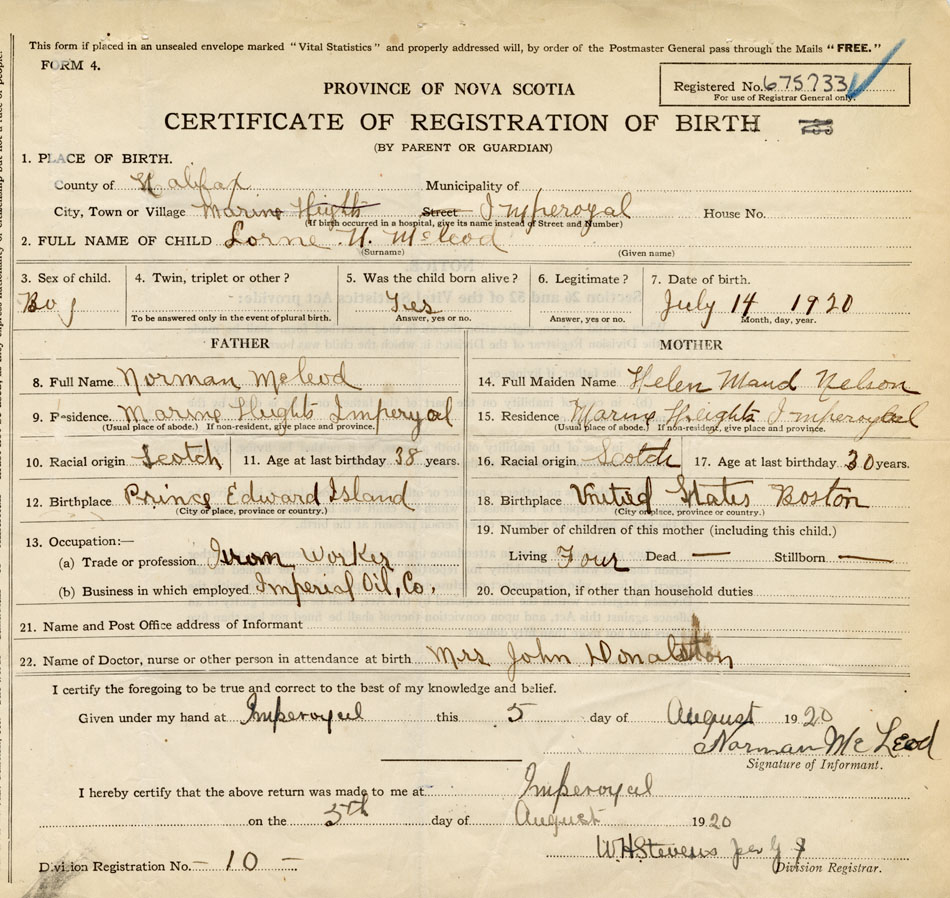 This form if placed in an unsealed envelope marked "Vital Statistics" and properly addressed will, by order of the Postmaster General pass through the Mails "FREE."
FORM 4.
Registered No. 675733
For use of Registrar General only.
PROVINCE OF NOVA SCOTIA
CERTIFICATE OF REGISTRATION OF BIRTH
(BY PARENT OR GUARDIAN)
1. PLACE OF BIRTH.
County of Halifax Municipality of
City, Town or Village Marine Hights Street Imperoyal House No.
(If birth occurred in a hospital, give its name instead of Street and Number)
2. FULL NAME OF CHILD Lorne N. Mcleod
(Surname) (Given name)
3. Sex of child. 4. Twin, triplet or other? 5. Was the child born alive? 6. Legitimate? 7. Date of birth.
Boy - Yes July 14 1920
To be answered only in the event of plural birth. Answer, yes or no. Answer, yes or no. Month, day, year.
FATHER MOTHER
8. Full Name Norman Mcleod 14. Full Maiden Name Helen Maud Nelson
9. Residence Marine Hights Imperyal 15. Residence Marine Heights Imperoyal
(Usual place of abode.) If non-resident, give place and province. (Usual place of abode.) If non-resident, give place and province.
10. Racial origin Scotch 11. Age at last birthday 38 years. 16. Racial origin Scotch 17. Age at last birthday 30 years.
12. Birthplace Prince Edward Island 18. Birthplace United States Boston
(City or place, province or country.) (City or place, province or country.)
13. Occupation:— 19. Number of children of this mother (including this child.)
(a) Trade or profession Iron Worker Living Four Dead — Stillborn —
(b) Business in which employed Imperial Oil, Co. 20. Occupation, if other than household duties
21. Name and Post Office address of Informant
22. Name of Doctor, nurse or other person in attendance at birth Mrs John Donalston
I certify the foregoing to be true and correct to the best of my knowledge and belief.
Given under my hand at Imperoyal this 5 day of August 1920
Norman McLeod
Signature of Informant.
I hereby certify that the above return was made to me at Imperoyal
on the 5th day of August 1920
W H Stevens per
Division Registration No. - 10 - Division Registrar.